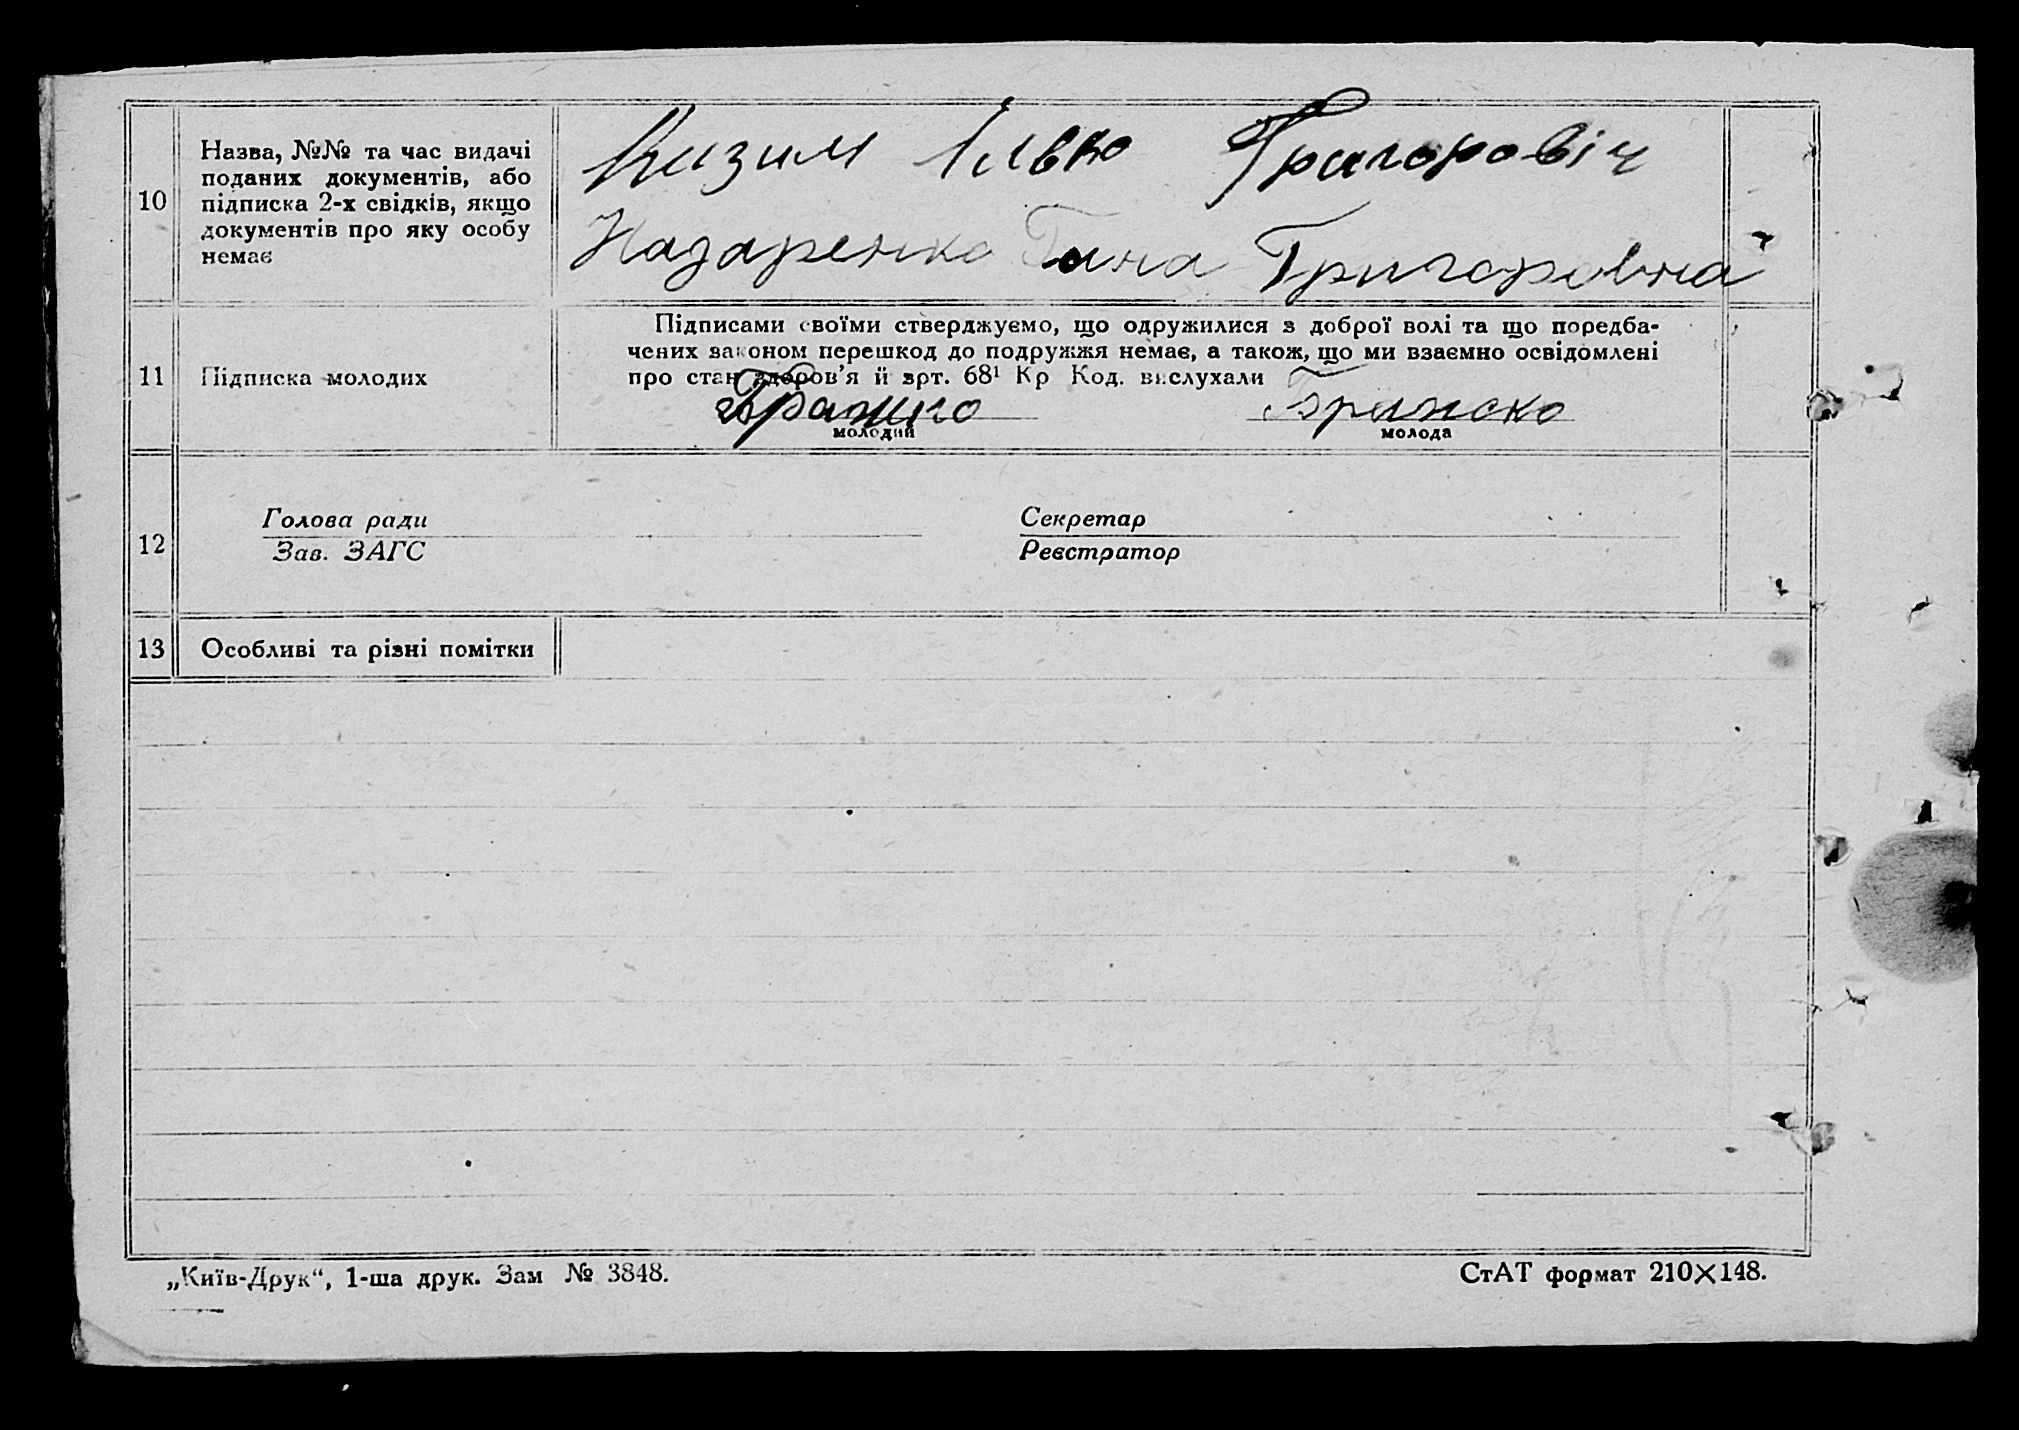 10
Назва, №№ та час видачі
поданих документів, або
підписка 2-х свідків, якщо
документів про яку особу
немає
Кизим Ілько Григоровіч
Назаренко Гана Григоровна
11
Підписка молодих
Підписами своїми стверджуємо, що одружилися з доброї волі та що поредба-
чених законом перешкод до подружжя немає, а також, що ми взаємно освідомлені
про стан здоров'я й врт. 68¹ Кр Код. вислухали
молодий
молода
12
Голова ради
Зав. ЗАГС
Секретар
Реєстратор
13
Особливі та різні помітки
„Київ-Друк“, 1-ша друк. Зам № 3848.
СтАТ формат 210×148.